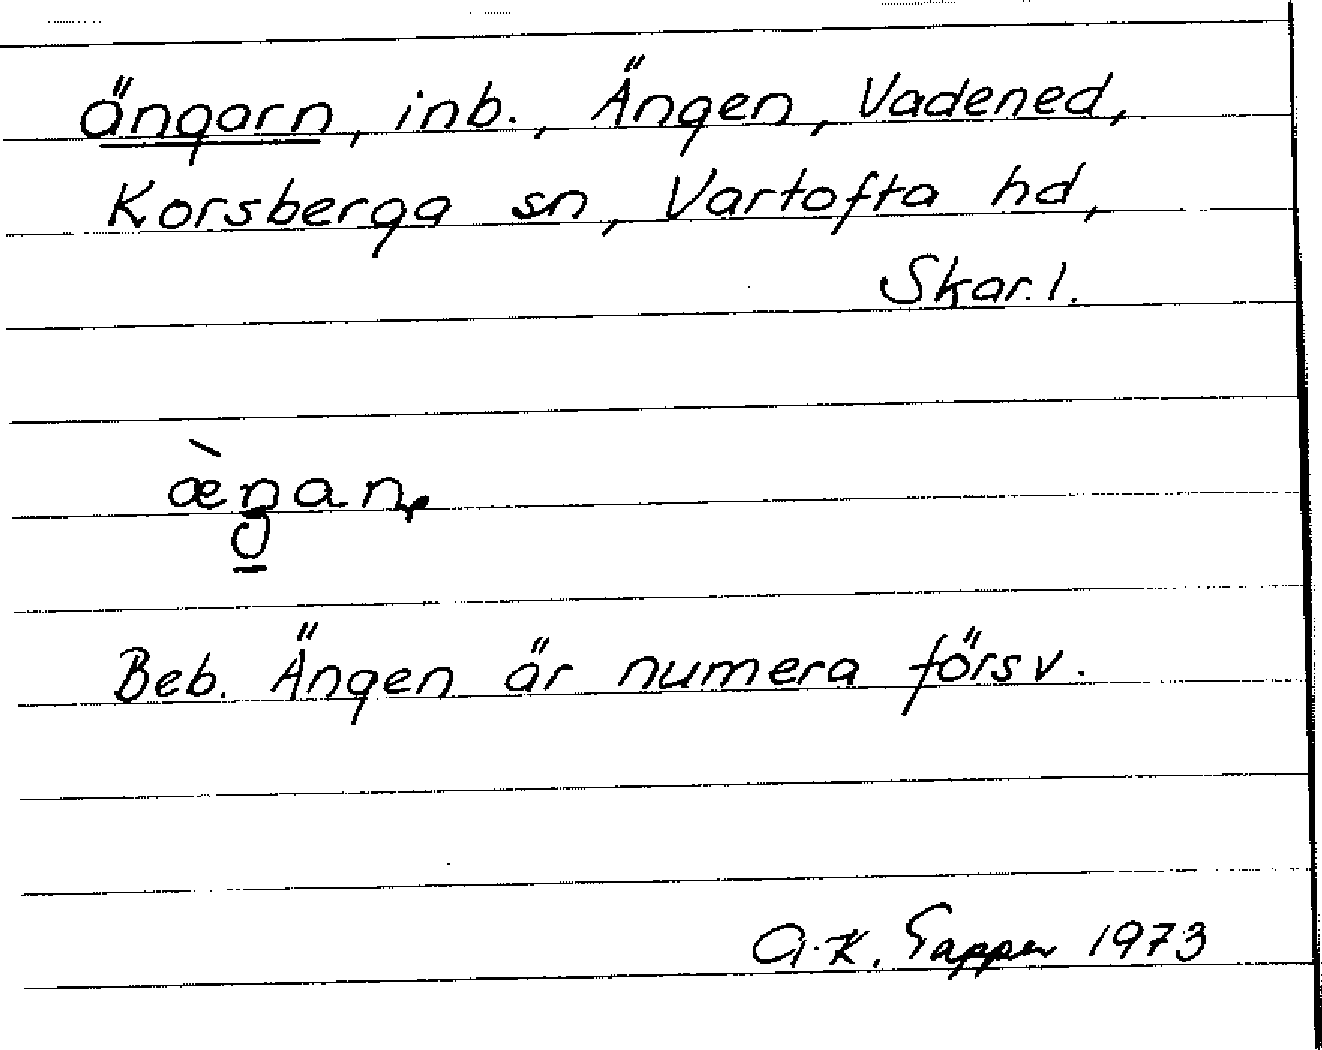 ängarn, inb., Ängen, Vadened,
Korsberga sn, Vartofta hd,
Skar. l.
æ̀ŋan
Beb. Ängen är numera försv.
A.-K. 1973